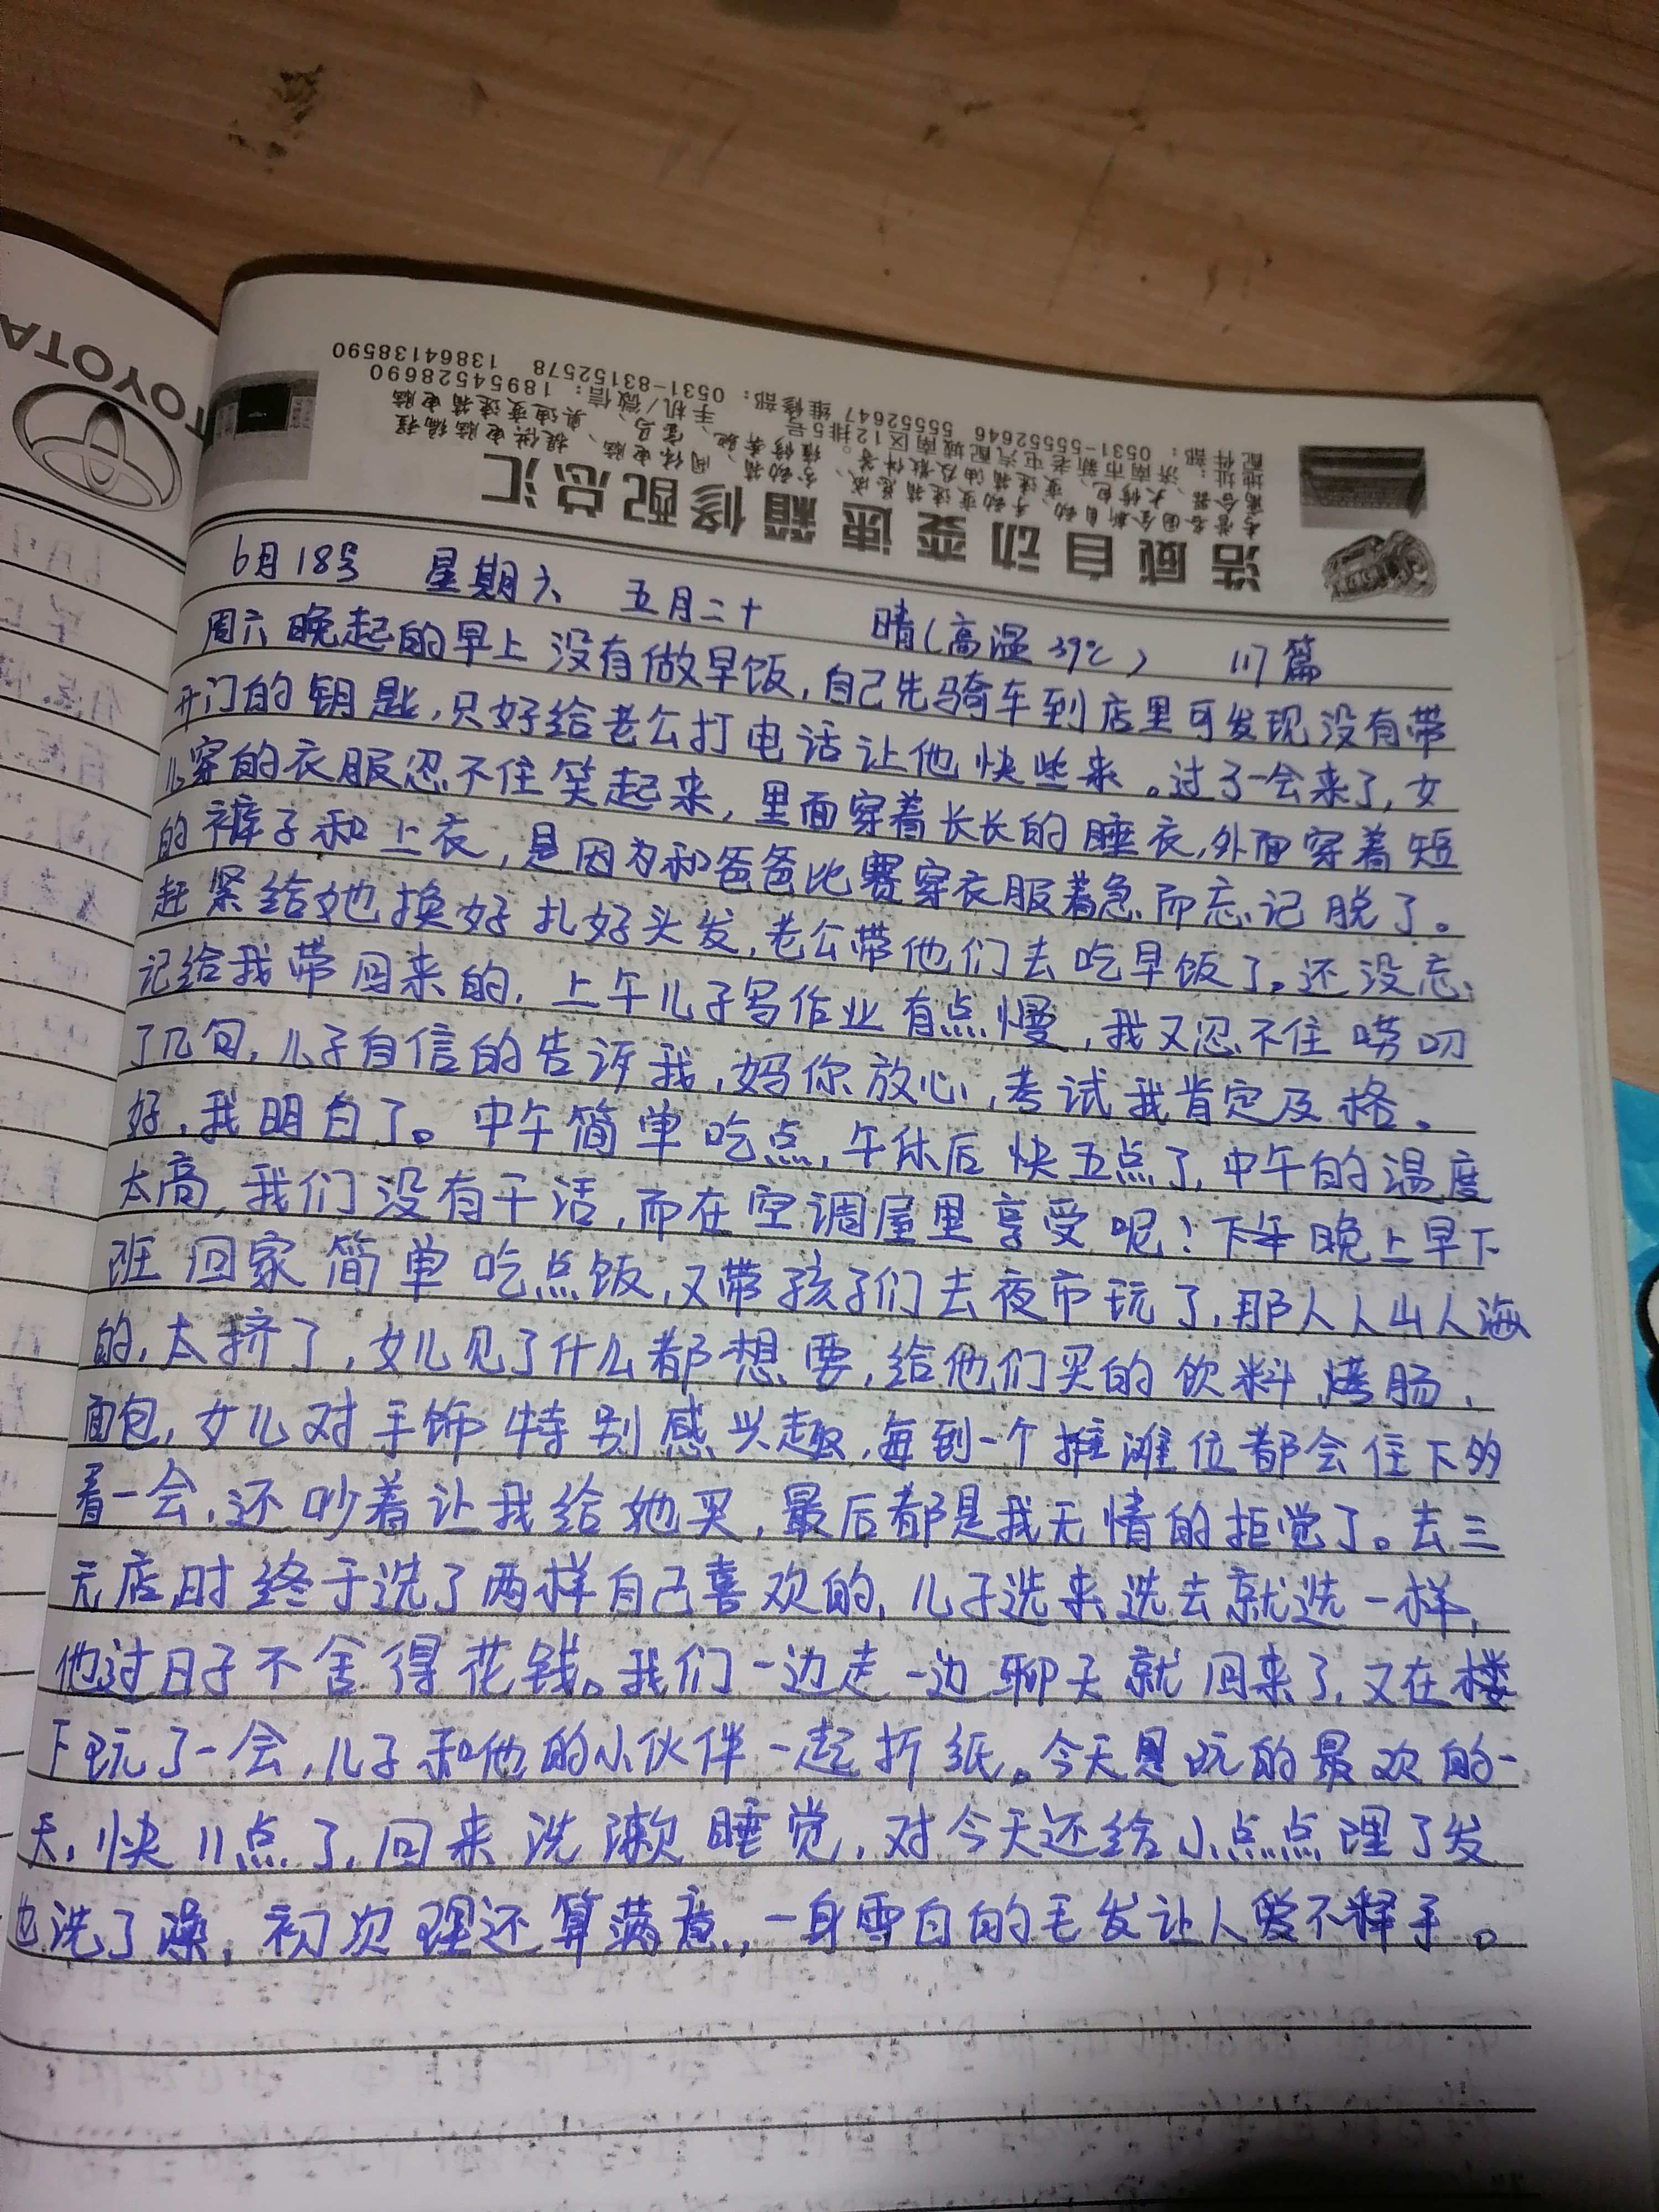 TOYOTA
TOYOTA
浩威自动变速箱修配总汇
地址：济南市新老屯汽配城南区12排5号。
配件部：0531-55552646 55552647 维修部：0531-83152578 13864138590
手机/微信：18954528690
6月18号 星期六 五月二十 晴（高温39℃） 117篇
周六晚起的早上没有做早饭，自己先骑车到店里可发现没有带
开门的钥匙，只好给老公打电话让他快些来。过了一会来了，女
儿穿的衣服忍不住笑起来，里面穿着长长的睡衣，外面穿着短
的裤子和上衣，是因为和爸爸比赛穿衣服着急而忘记脱了。
赶紧给她换好扎好头发，老公带他们去吃早饭了。还没忘
记给我带回来的，上午儿子写作业有点慢，我又忍不住唠叨
了几句，儿子自信的告诉我，妈你放心，考试我肯定及格。
好，我明白了。中午简单吃点，午休后快五点了，中午的温度
太高，我们没有干活，而在空调屋里享受呢！下午晚上早下
班回家简单吃点饭，又带孩子们去夜市玩了，那人人山人海
的，太挤了，女儿见了什么都想要，给他们买的饮料，烤肠，
面包，女儿对手饰特别感兴趣，每到一个摊位都会住下的
看一会，还吵着让我给她买，最后都是我无情的拒觉了。去三
元店时终于选了两样自己喜欢的，儿子选来选去就选一样，
他过日子不舍得花钱。我们一边走一边聊天就回来了，又在楼
下玩了一会，儿子和他的小伙伴一起折纸。今天是玩的最欢的一
天，快11点了，回来洗漱睡觉，对今天还给小点点理了发
也洗了澡，初次理还算满意，一身雪白的毛发让人爱不释手。